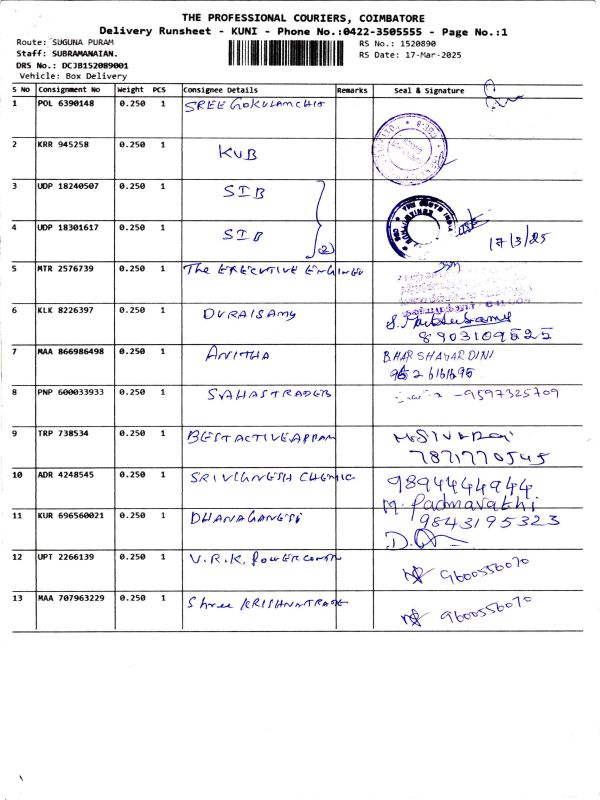 THE PROFESSIONAL COURIERS, COIMBATORE
Delivery Runsheet - KUNI - Phone No.:0422-3505555 - Page No.:1
Route: SUGUNA PURAM
RS No.: 1520890
Staff: SUBRAMANAIAN.
RS Date: 17-Mar-2025
DRS No.: DCJB152089001
Vehicle: Box Delivery
S No Consignment No Weight PCS Consignee Details Remarks Seal & Signature
1 POL 6390148 0.250 1 SREE GOKULAMCHIT
2 KRR 945258 0.250 1 KVB
3 UDP 18240507 0.250 1 SIB
4 UDP 18301617 0.250 1 SIB (2) 17/3/25
5 MTR 2576739 0.250 1 The EXECUTIVE ENGINEE
6 KLK 8226397 0.250 1 DURAISAMY
8903109525
7 MAA 866986498 0.250 1 ANITHA BHARSHAVARDINI
8 PNP 600033933 0.250 1 SAHASTRADERS -9597325709
9 TRP 738534 0.250 1 BESTACTIVEAPPAM
7871770545
10 ADR 4248545 0.250 1 SRIVIGNESH CHEMIC 9894444944
M. Padmavathi
11 KUR 696560021 0.250 1 DHANAGANESI 9843195323
12 UPT 2266139 0.250 1 V.R.K. POWERCONTR 9600556070
13 MAA 707963229 0.250 1 Shree KRISHNATRADE 9600556070